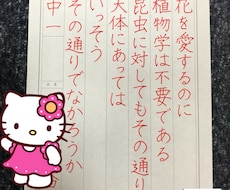 花を愛するのに
植物学は不要である
昆虫に対してもその通り
天体にあっては
いっそう
その通りでなかろうか
中一